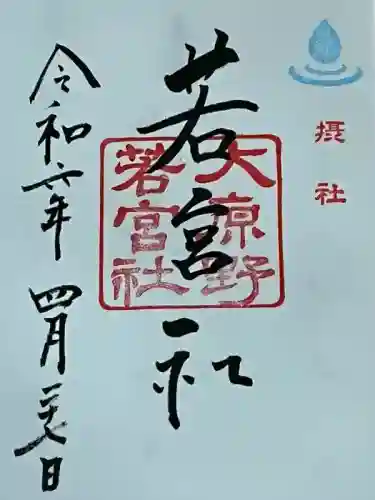 摂社
若宮社
大涼野
若宮社
令和六年
四月二十七日